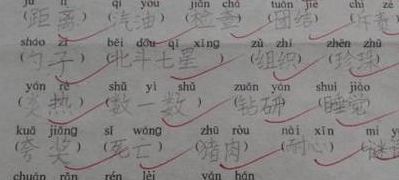 jù lí qì yóu jiǎn chá tuán jié chì zé
(距离) (汽油) (检查) (团结) (斥责
sháo zi běi dǒu qī xīng zǔ zhī zhēn zhū
(勺子) (北斗七星) (组织) (珍珠)
yán rè shǔ yì shǔ zuān yán shuì jiào
(炎热) (数一数) (钻研) (睡觉)
kuā jiǎng sǐ wáng zhū ròu nài xīn mí yǔ
(夸奖) (死亡) (猪肉) (耐心) (谜语
chuán rǎn rén lèi yán hán